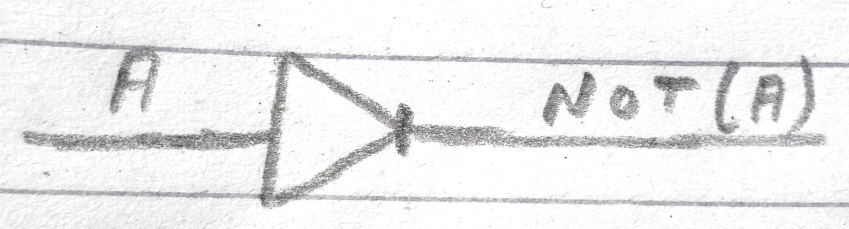 A NOT(A)